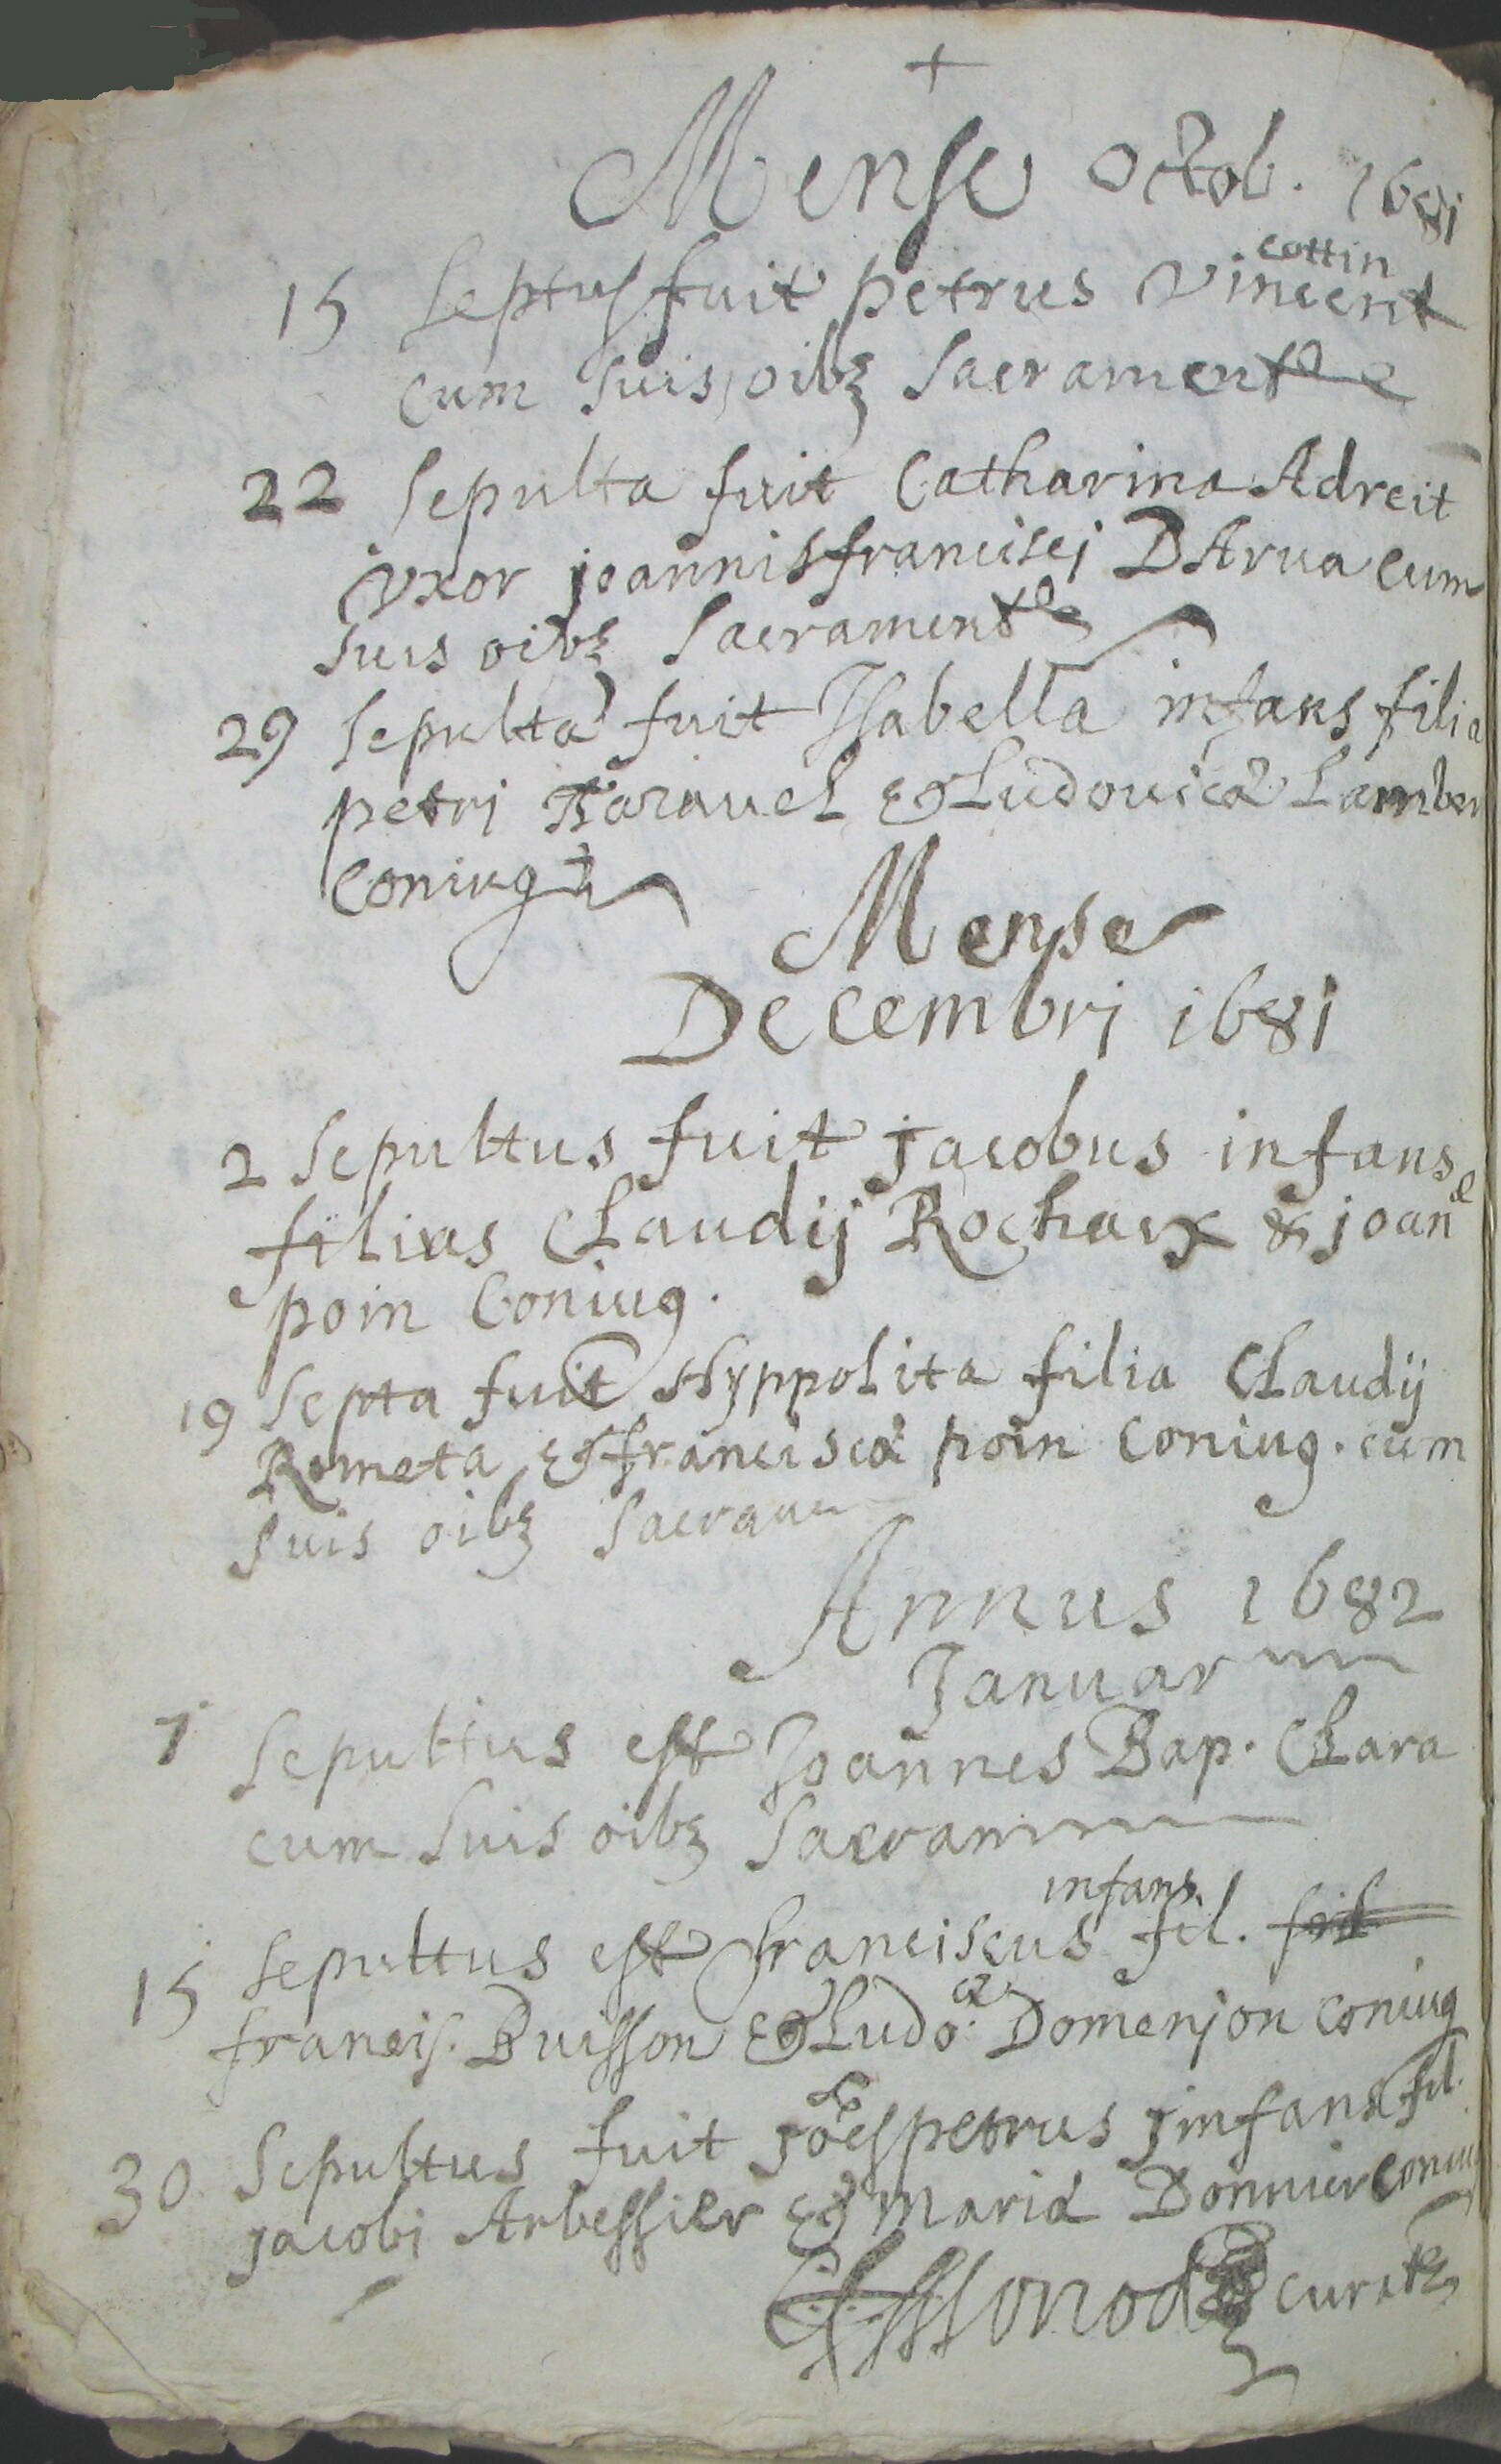 +
Mense Octob. 1681
cottin
15 Septus fuit petrus Vincent
cum suis oibz Sacramente
22 Sepulta fuit Catharina Adreit
Vxor joannisfrancisci DArua cum
suis oibz Sacramente
29 Sepulta fuit Isabella infans filia
petri Karauel & Ludouicæ Lamber
Coniug
Mense
Decembri 1681
2 Sepultus fuit jacobus infans
filius Claudij Rochaix & joanæ
poin Coniug.
19 Septa fuit Hyppolita filia Claudij
Rometa & franciscæ poin Coniug. cum
suis oibz Sacram
Annus 1682
Januar
7 Sepultus est Joannes Bap. Clara
cum suis oibz Sacram
infans
15 Sepultus est franciscus fil. fril
francis. Buisson & Ludo.æ Domenjon coniug
30 Sepultus fuit Jöespetrus jnfans fil.
jacobi Arbessier & Mariæ Donnier coniu
curatz